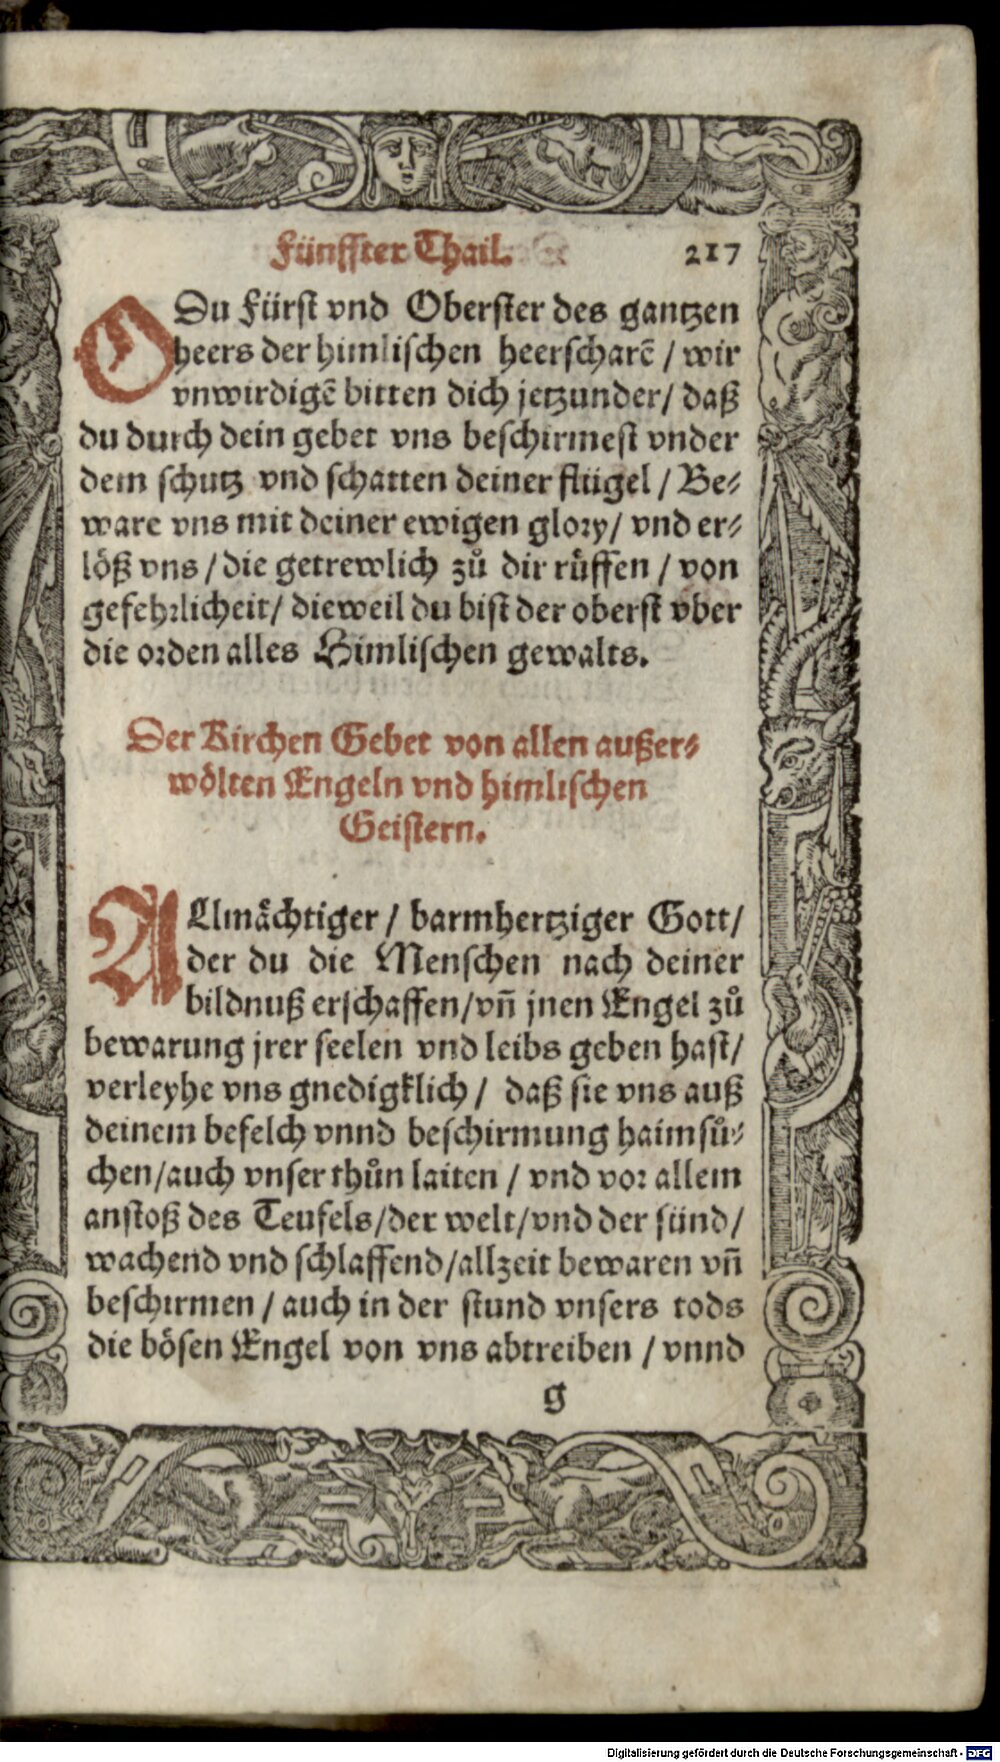 Fünffter Thail. 217
O Du Fürst vnd Oberster des gantzen
heers der himlischen heerscharē / wir
vnwirdigē bitten dich jetzunder / daß
du durch dein gebet vns beschirmest vnder
dem schutz vnd schatten deiner flügel / Be⸗
ware vns mit deiner ewigen glory / vnd er⸗
löß vns / die getrewlich zů dir růffen / von
gefehrlicheit / dieweil du bist der oberst vber
die orden alles Himlischen gewalts.
Der Kirchen Gebet von allen außer⸗
wölten Engeln vnd himlischen
Geistern.
ALlmächtiger / barmhertziger Gott /
der du die Menschen nach deiner
bildnuß erschaffen / vñ jnen Engel zů
bewarung jrer seelen vnd leibs geben hast /
verleyhe vns gnedigklich / daß sie vns auß
deinem befelch vnnd beschirmung haimsů⸗
chen / auch vnser thůn laiten / vnd vor allem
anstoß des Teufels / der welt / vnd der sünd /
wachend vnd schlaffend / allzeit bewaren vñ
beschirmen / auch in der stund vnsers tods
die bösen Engel von vns abtreiben / vnnd
g
Digitalisierung gefördert durch die Deutsche Forschungsgemeinschaft - DFG